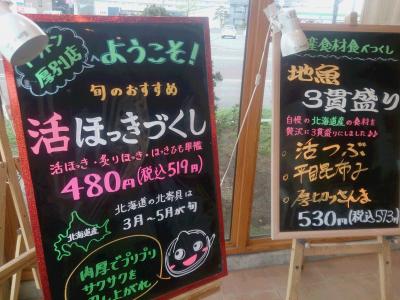 トリトン
厚別店
ようこそ!
旬のおすすめ
活ほっきづくし
活ほっき・炙りほっき・ほっきひも軍艦
480円(税込519円)
北海道産
北海道の北寄貝は
3月～5月が旬
肉厚でプリプリ
サクサクを
産食材食べつくし
地魚
3貫盛り
自慢の北海道産の食材を
贅沢に3貫盛りにしました♪♪
○活つぶ
○平目昆布〆
○厚切りさんま
530円(税込573円)